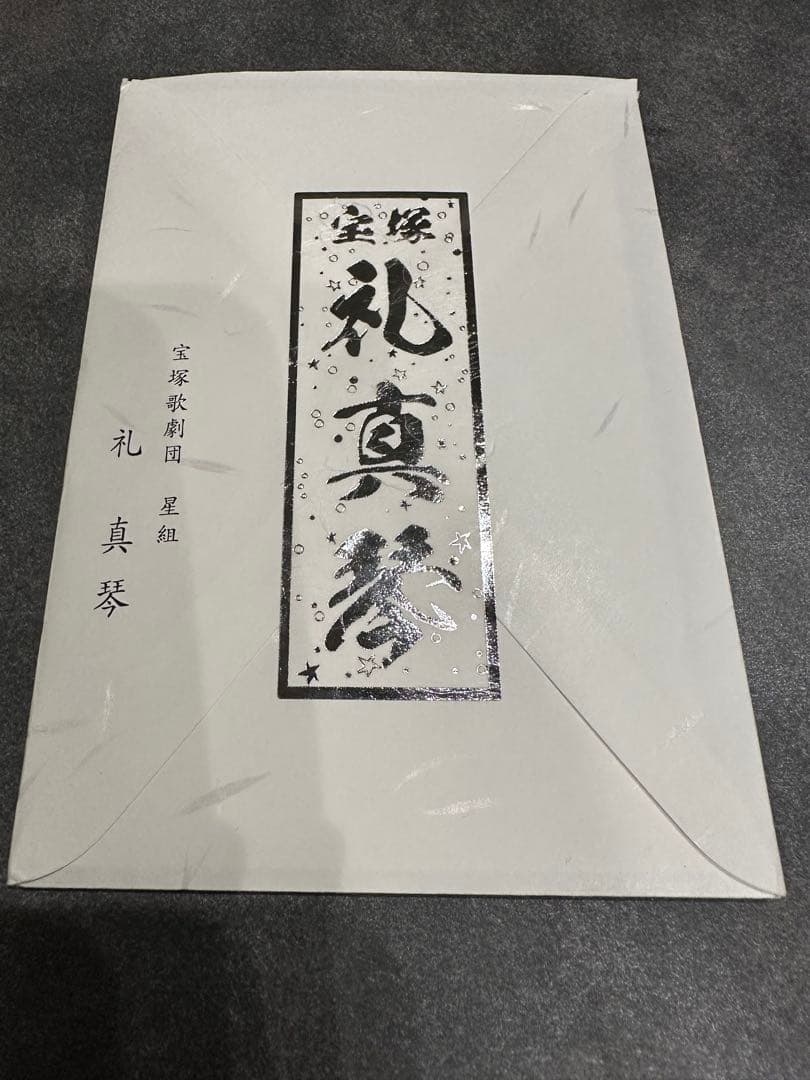 宝塚
礼真琴
宝塚歌劇団 星組
礼 真琴